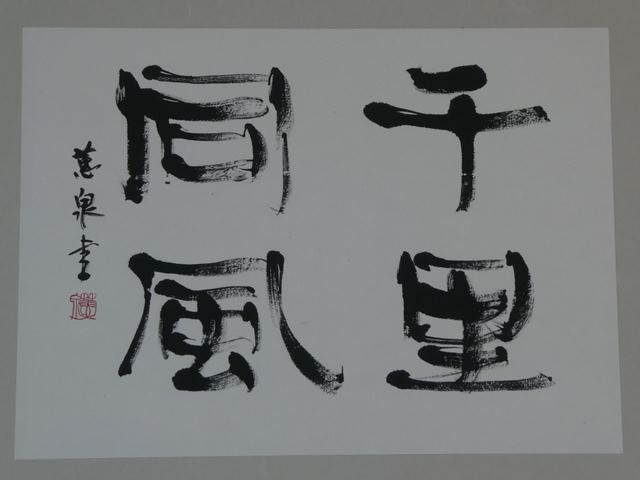 千里
同風
蕙泉書